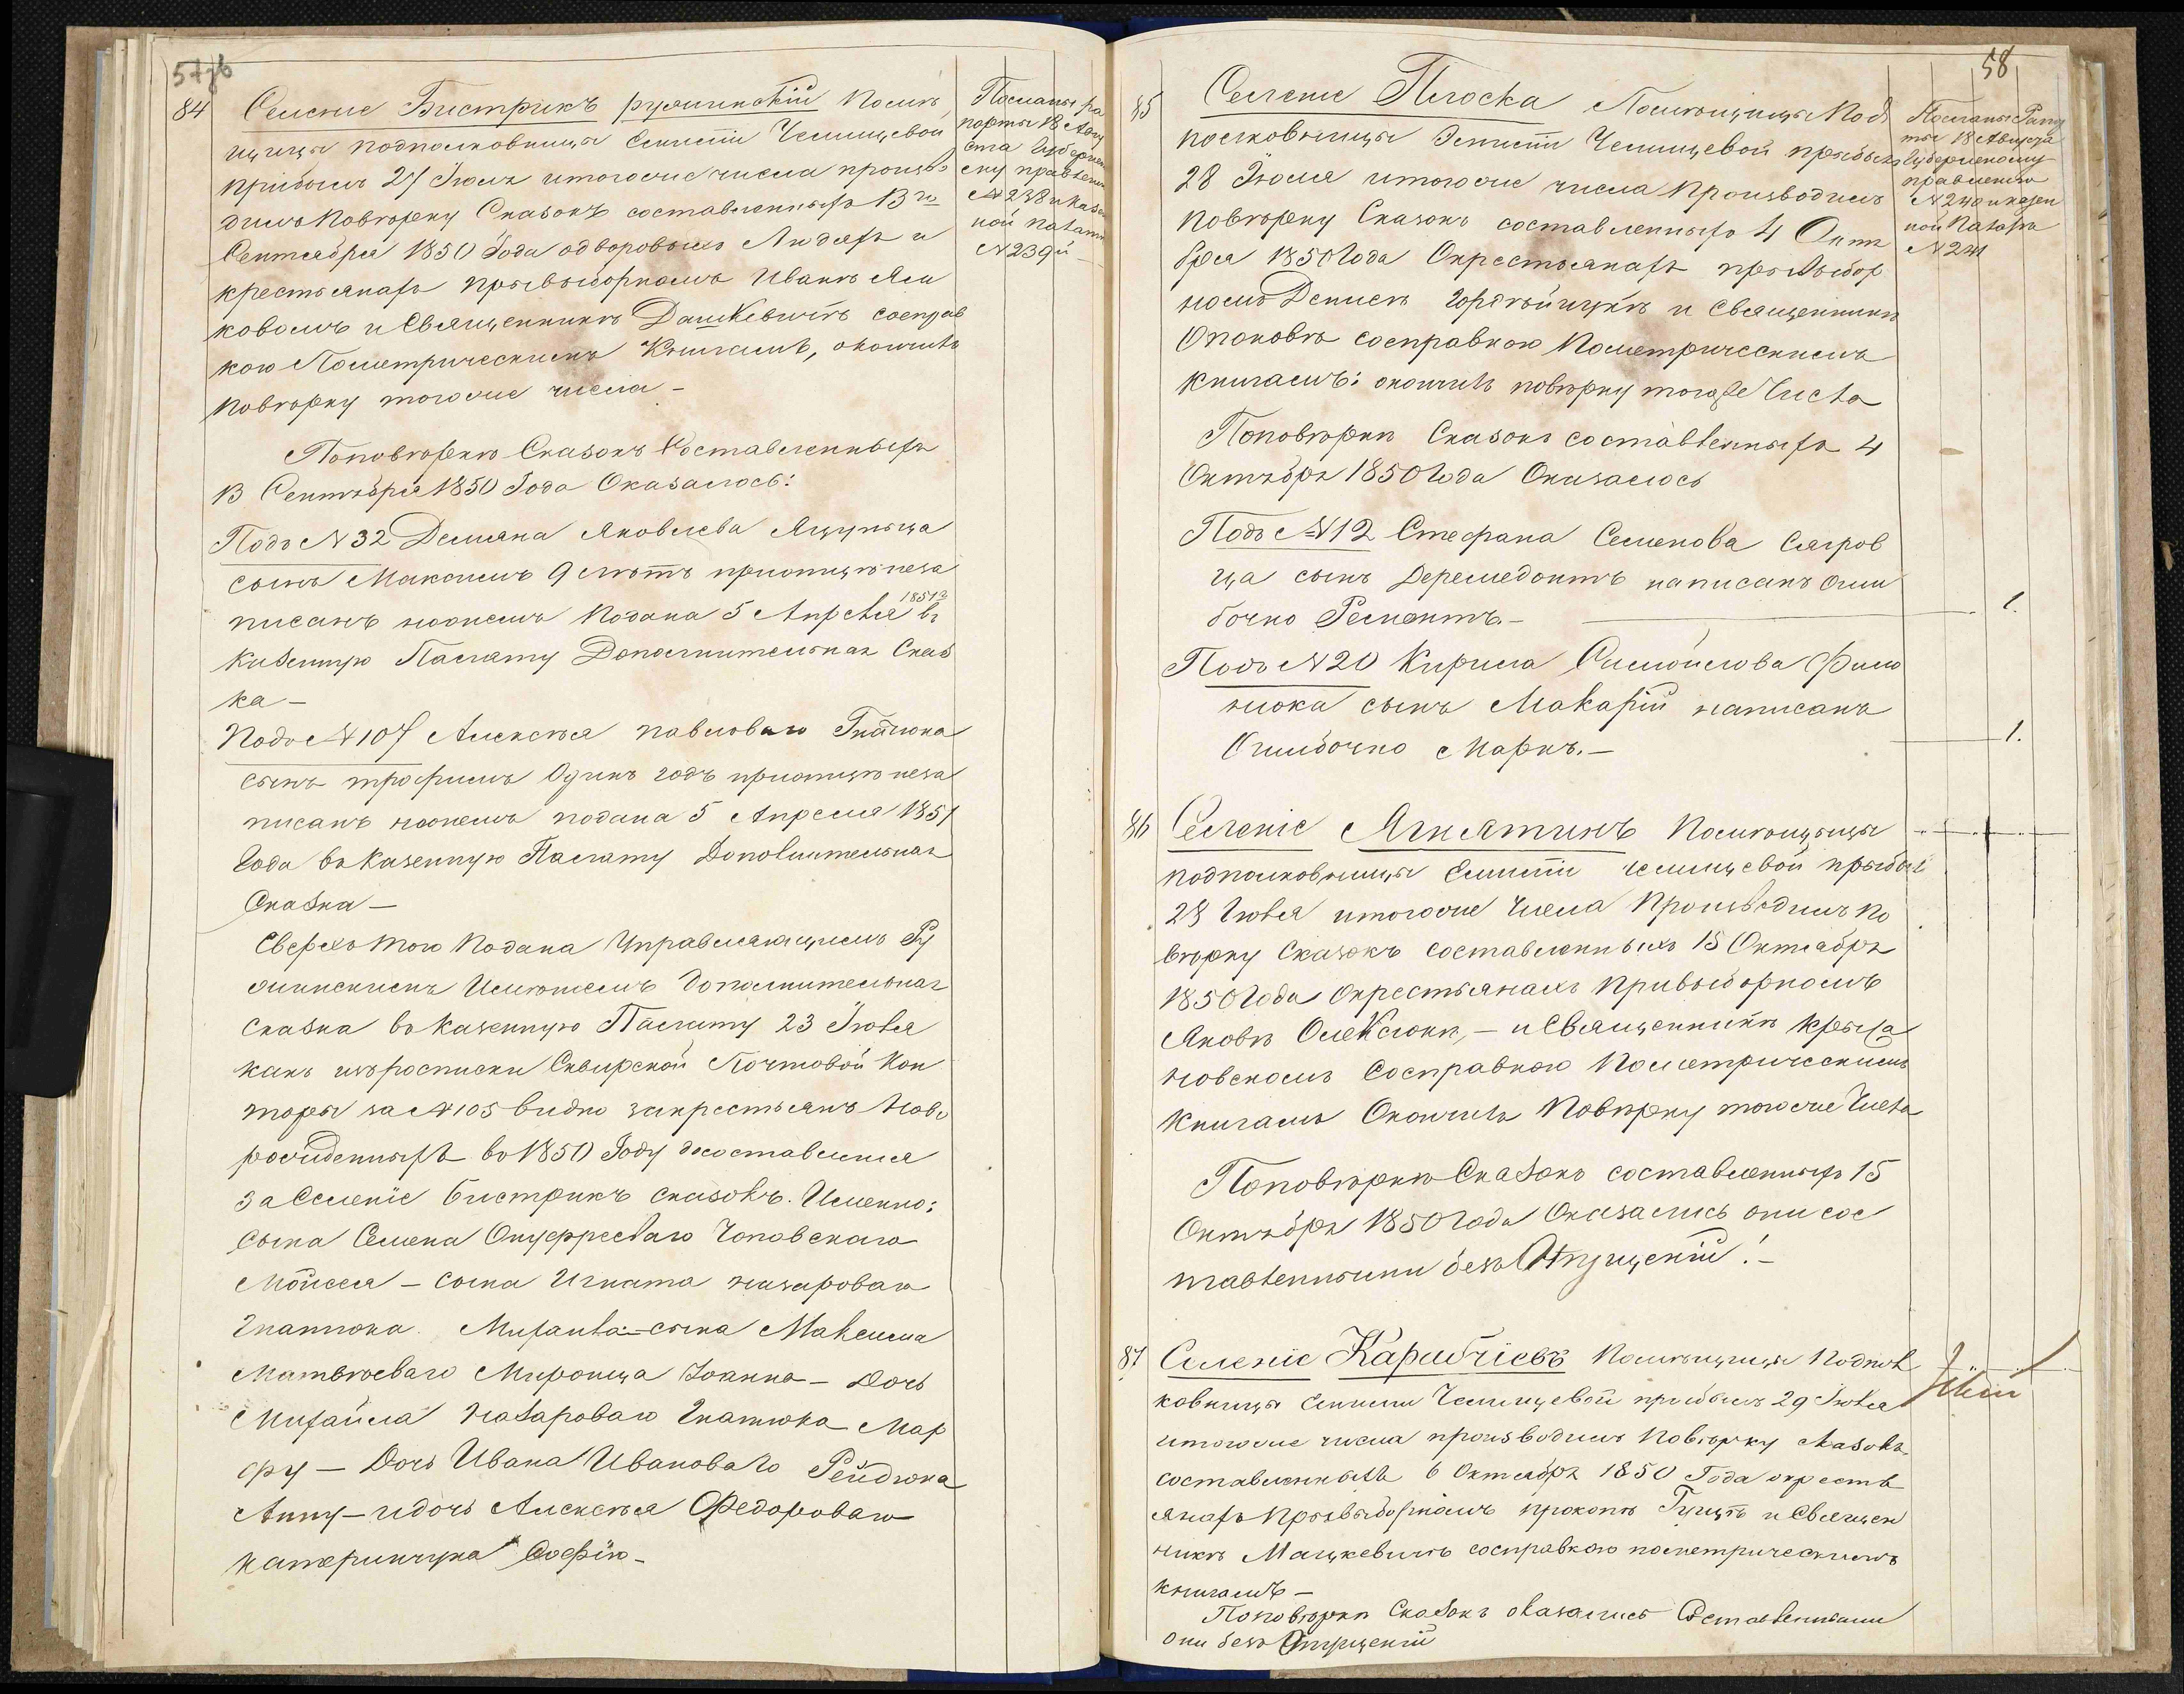 57об
84 Селеніе Бистрикъ ружинскій Помѣ
щицы подполковницы Емиліи Чемищевой
прибылъ 27 Іюля итогоже числа произво
дилъ Повѣрку Сказокъ составленныхъ 13го
Сентября 1850 Года одворовыхъ Людяхъ и
крестьянахъ привыборномъ Иванѣ Яси
ковомъ и Священникѣ Дашкевичѣ сосправ
кою Пометрическимъ Книгамъ, окончилъ
Повѣрку тогоже числа –
Посланы ра
порты 18 Авгу
ста Губернс
ому правлению
№ 238 и казен
ной палатѣ
№ 239й
Поповѣркѣ Сказокъ Составленныхъ
13 Сентября 1850 Года Оказалось:
Подъ № 32 Демяна Яковлева Яцунца
сынъ Максимъ 9 лѣтъ пріопищѣ неза
писанъ ноонемъ Подана 5 Апрѣля 1851г въ
Казенную Палату Дополнительная Сказ
ка –
Подъ № 107 Алексѣя павловаго Гнатюка
сынъ трофимъ Одинъ годъ пріопищѣ неза
писанъ ноонемъ подана 5 Апреля 1851
Года въ Казенную Палату Дополнительная
Сказка –
Сверхъ того Подана Управляющимъ Ру
жинскимъ Имѣніемъ Дополнительная
сказка въ казенную Палату 23 Іюля
какъ изъ росписки Сквирской Почтовой Кон
торы за № 105 видно закрестьянъ Ново
рожденныхъ въ 1850 Году досоставленія
за Селеніе Бистрикъ сказокъ. Именно:
Сына Семена Онуфреваго Чоповскаго
Мойсея – сына Игната назароваго
Гнатюка. Михаила – сына Максима
Матвѣеваго Миронца Іоанна – Дочь
Михайла Назароваго Гнатюка Мар
фу – Дочь Ивана Ивановаго Рейдюка
Анну – идочь Алексѣя Федороваго
катеринчука Софію –
58
85 Селеніе Плоска Помѣщицы Под
полковницы Емиліи Чемищевой прибылъ
28 Іюля итогоже числа Производилъ
Повѣрку Сказокъ составленныхъ 4 Октя
бря 1850 Года Окрестьянахъ привыбор
номъ Денисѣ Гордѣйчукѣ и Священникѣ
Опоковѣ сосправкою Пометрическимъ
книгамъ: окончилъ повѣрку тогоже Числа
Посланы Рапор
ты 18 Августа
Губернскому
правленію
№ 240 и казен
ной Палатѣ
№ 241
Поповѣрки Сказокъ составленныхъ 4
Октября 1850 Года Оказалось
Подъ № 12 Стефана Семенова Сягров
ца сынъ Деремедонтъ написанъ оши
бочно Ремонтъ. – 1.
Подъ № 20 Кирила Самойлова Фили
нюка сынъ Макарій написанъ
Ошибочно Маркъ. – 1.
86 Селеніе Ягнятинъ Помѣщицы
подполковницы Емиліи чемищевой прибылъ
28 Іюля итогоже Числа Производилъ По
вѣрку Сказокъ составленныхъ 15 Октября
1850 Года Окрестьянахъ Привыборномъ
Яковѣ Олексюкѣ, – и Священникѣ Крыжа
новскомъ Сосправкою Пометрическимъ
Книгамъ Окончилъ Повѣрку тогоже Числа
Поповѣркѣ Сказокъ составленныхъ 15
Октября 1850 Года Оказались они сос
тавленными безъ Опущеній! –
87 Селеніе Карабчіевъ Помѣщицы Подпол
ковницы Емиліи Чемищевой прибылъ 29 Іюля
итогоже числа производилъ Повѣрку Сказокъ
составленныхъ 6 Октября 1850 Года окресть
янахъ Привыборномъ прокопѣ Гуцѣ и Священ
никѣ Мацкевичѣ сосправкою пометрическимъ
книгамъ –
Поповѣрки Сказокъ оказались Составленными
они безъ Опущеній